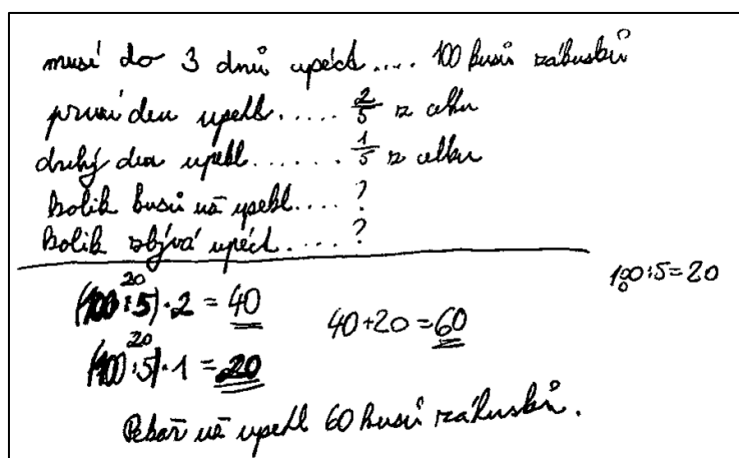 musí do 3 dnů upéct.... 100 kusů zákusků
první den upekl..... 2/5 z celku
druhý den upekl...... 1/5 z celku
Kolik kusů už upekl.... ?
Kolik zbývá upéct.... ?
20
(100:5)·2 = 40
40+20=60
100:5=20
0
20
(100:5)·1 = 20
Pekař už upekl 60 kusů zákusků.